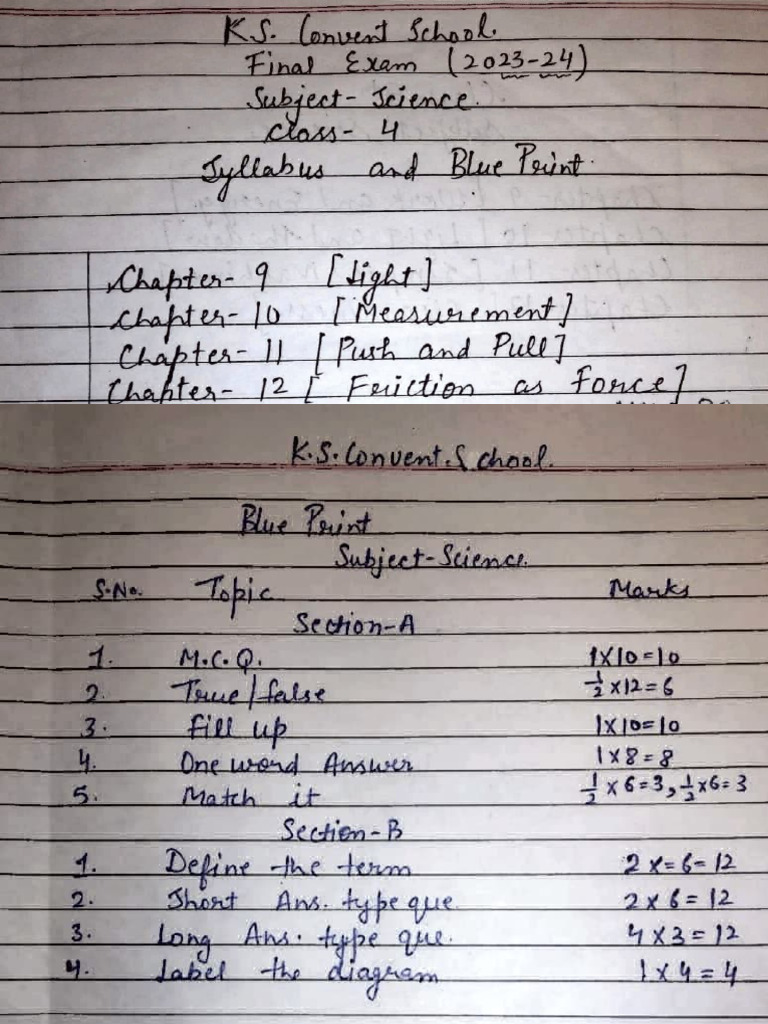 K.S. Convent School.
Final Exam (2023-24)
Subject- Science.
Class- 4
Syllabus and Blue Print.
Chapter- 9 [Light]
Chapter- 10 [Measurement]
Chapter- 11 [Push and Pull]
Chapter- 12 [Friction as Force]
K.S. Convent School.
Blue Print
Subject-Science.
S.No. Topic Marks
Section-A
1. M.C.Q. 1×10=10
2. True/false ½×12=6
3. Fill up 1×10=10
4. One word Answer 1×8=8
5. Match it ½×6=3, ½×6=3
Section-B
1. Define the term 2×=6=12
2. Short Ans. type que. 2×6=12
3. Long Ans. type que. 4×3=12
4. Label the diagram 1×4=4